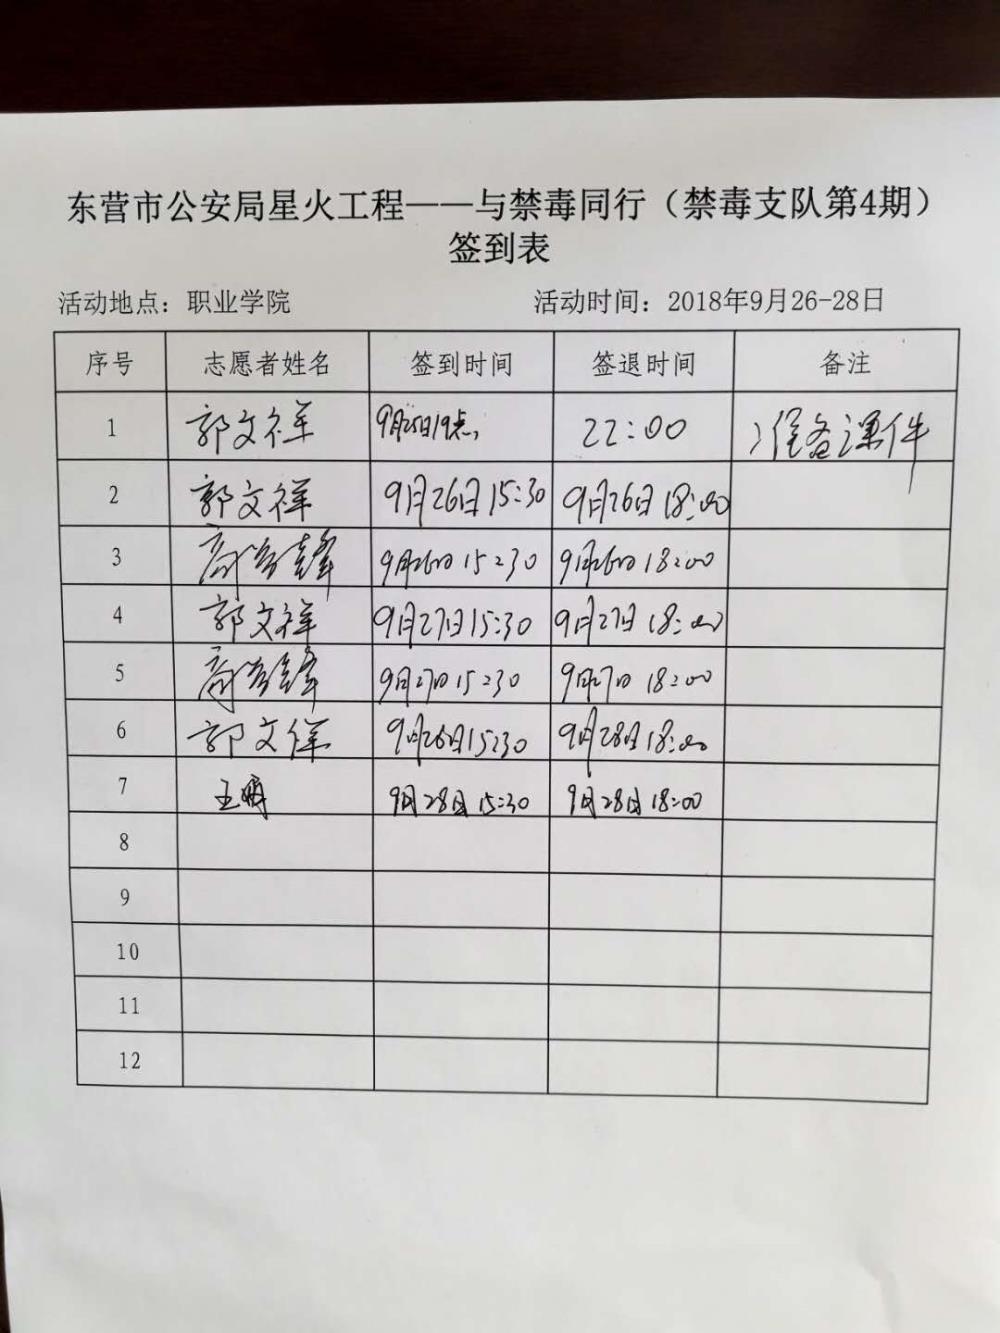 东营市公安局星火工程——与禁毒同行（禁毒支队第4期）
签到表
活动地点：职业学院 活动时间：2018年9月26-28日
序号 志愿者姓名 签到时间 签退时间 备注
1 郭文祥 9月25日19点 22:00 准备课件
2 郭文祥 9月26日15:30 9月26日18:00
3 9月26日15:30 9月26日18:00
4 郭文祥 9月27日15:30 9月27日18:00
5 9月27日15:30 9月27日18:00
6 郭文祥 9月28日15:30 9月28日18:00
7 王 9月28日15:30 9月28日18:00
8
9
10
11
12